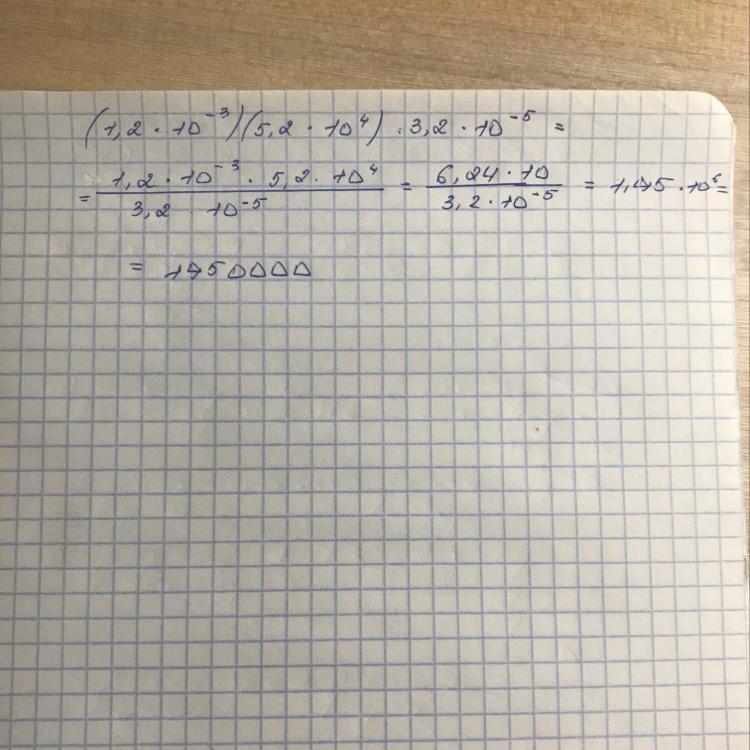 (1,2 · 10⁻³)(5,2 · 10⁴) : 3,2 · 10⁻⁵ =
= (1,2 · 10⁻³ · 5,2 · 10⁴) / (3,2 · 10⁻⁵) = (6,24 · 10) / (3,2 · 10⁻⁵) = 1,45 · 10⁶ =
= 1450000